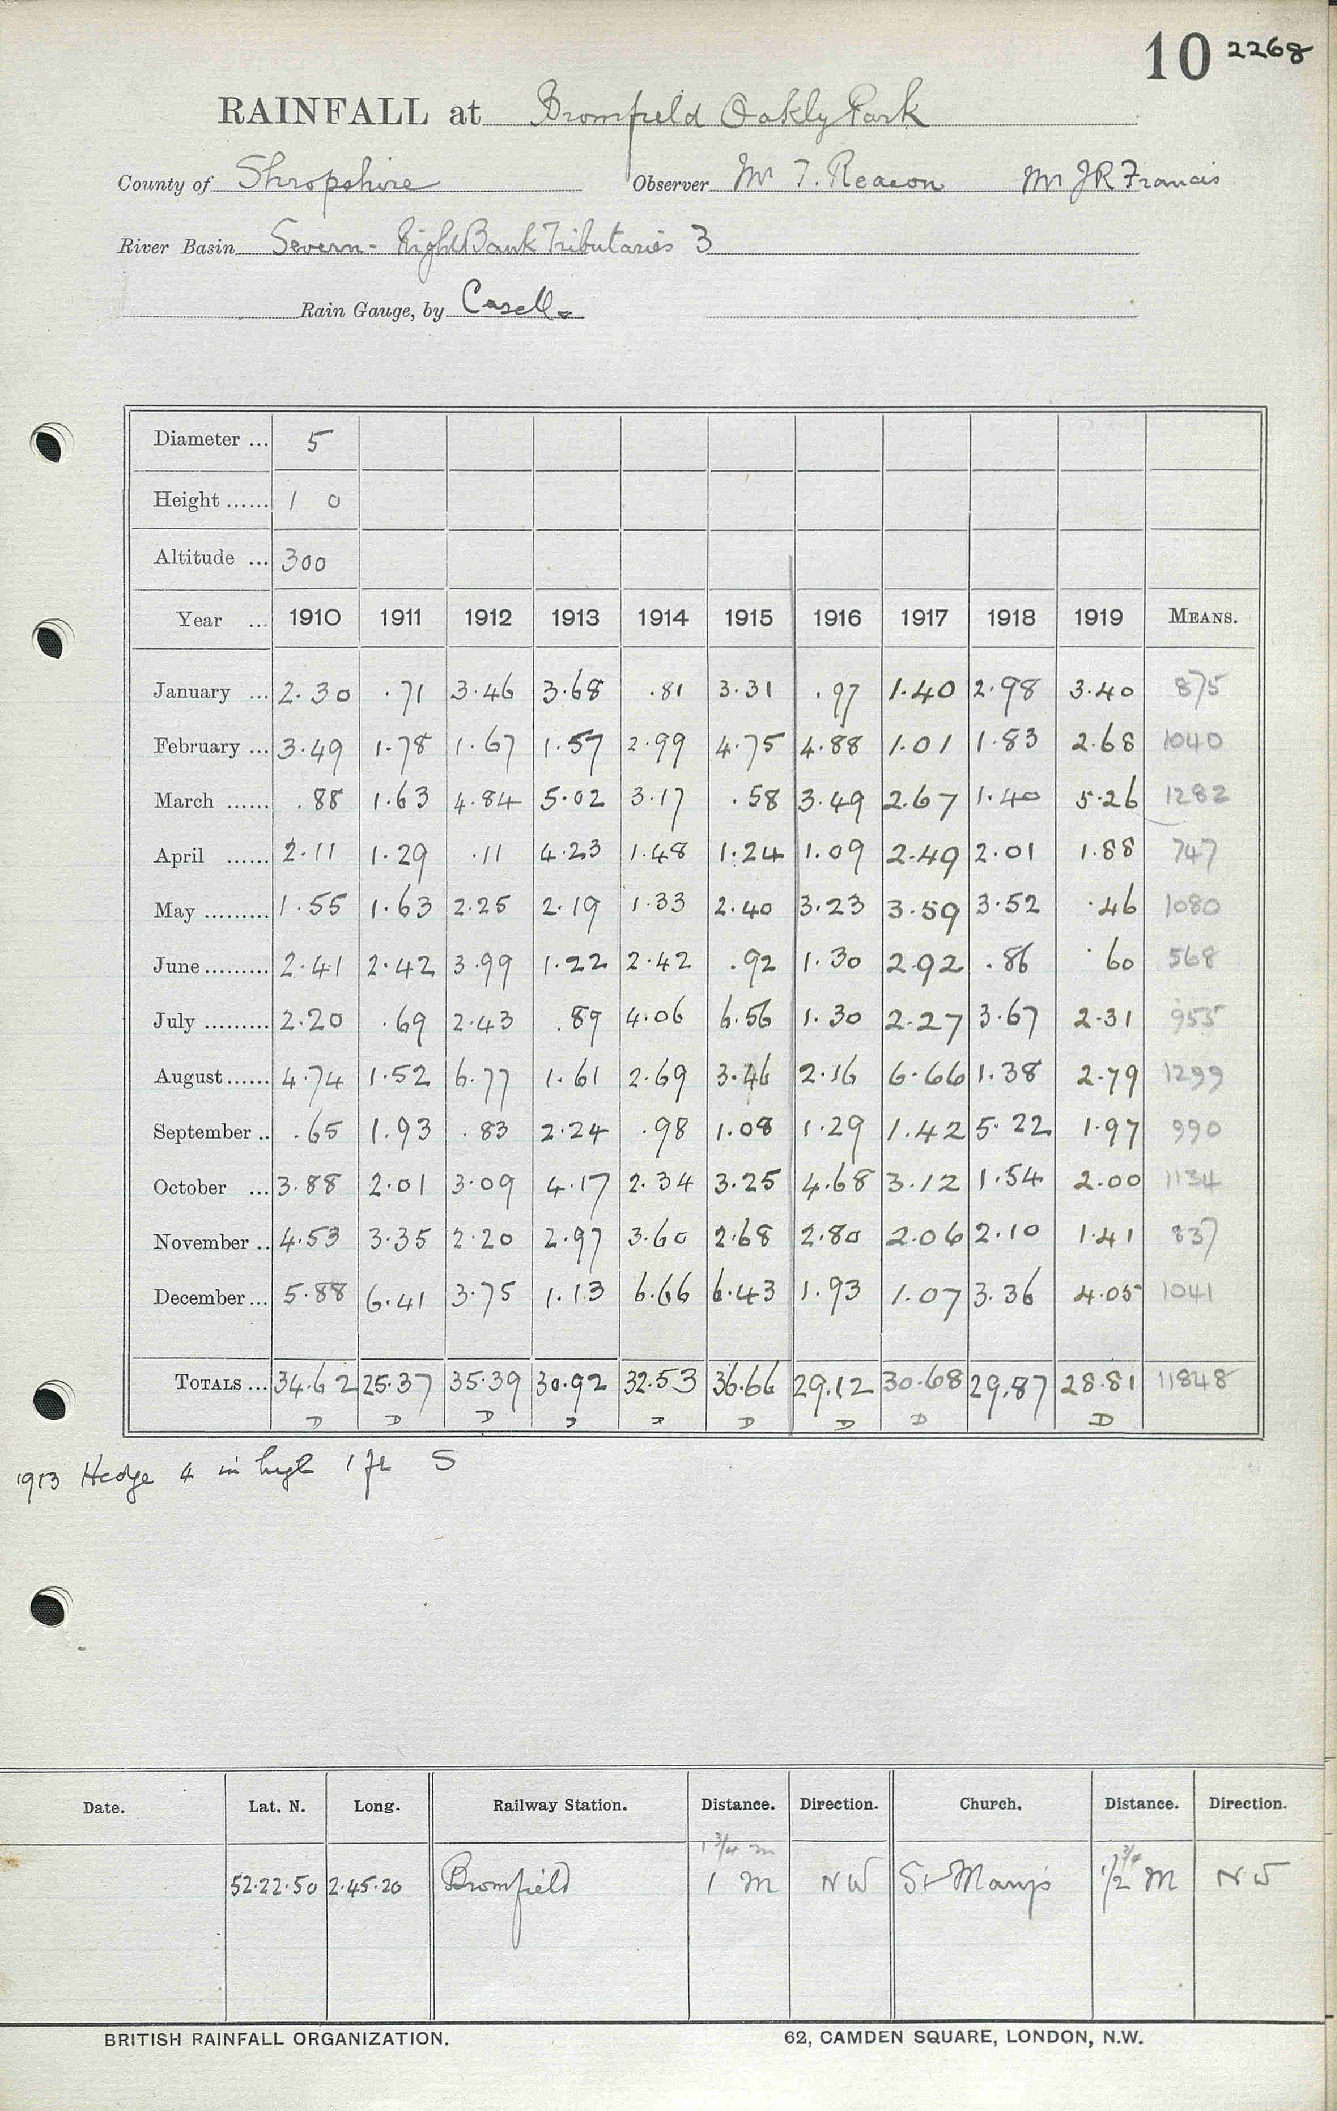 10 2268
RAINFALL at Bromfield Oakly Park
County of Shropshire Observer Mr T. Reacon Mr JR Francis
River Basin Severn - Right Bank Tributaries 3
Rain Gauge, by Casella
Diameter ... 5
Height ...... 1 0
Altitude ... 300
Year ... 1910 1911 1912 1913 1914 1915 1916 1917 1918 1919 MEANS.
January ... 2.30 .71 3.46 3.68 .81 3.31 .97 1.40 2.98 3.40 875
February ... 3.49 1.78 1.67 1.57 2.99 4.75 4.88 1.01 1.83 2.68 1040
March ...... .88 1.63 4.84 5.02 3.17 .58 3.49 2.67 1.40 5.26 1282
April ...... 2.11 1.29 .11 4.23 1.48 1.24 1.09 2.49 2.01 1.88 747
May ......... 1.55 1.63 2.25 2.19 1.33 2.40 3.23 3.59 3.52 .46 1080
June ......... 2.41 2.42 3.99 1.22 2.42 .92 1.30 2.92 .86 .60 568
July ......... 2.20 .69 2.43 .89 4.06 6.56 1.30 2.27 3.67 2.31 955
August ...... 4.74 1.52 6.77 1.61 2.69 3.46 2.16 6.66 1.38 2.79 1299
September .. .65 1.93 .83 2.24 .98 1.08 1.29 1.42 5.22 1.97 990
October ... 3.88 2.01 3.09 4.17 2.34 3.25 4.68 3.12 1.54 2.00 1134
November .. 4.53 3.35 2.20 2.97 3.60 2.68 2.80 2.06 2.10 1.41 837
December ... 5.88 6.41 3.75 1.13 6.66 6.43 1.93 1.07 3.36 4.05 1041
TOTALS ... 34.62 25.37 35.39 30.92 32.53 36.66 29.12 30.68 29.87 28.81 11848
D D D D D D D D D
1913 Hedge 4 in high 1 ft S
Date. Lat. N. Long. Railway Station. Distance. Direction. Church. Distance. Direction.
1 3/4 m 3/4
52.22.50 2.45.20 Bromfield 1 m NW St Marys 1/2 M NW
BRITISH RAINFALL ORGANIZATION. 62, CAMDEN SQUARE, LONDON, N.W.